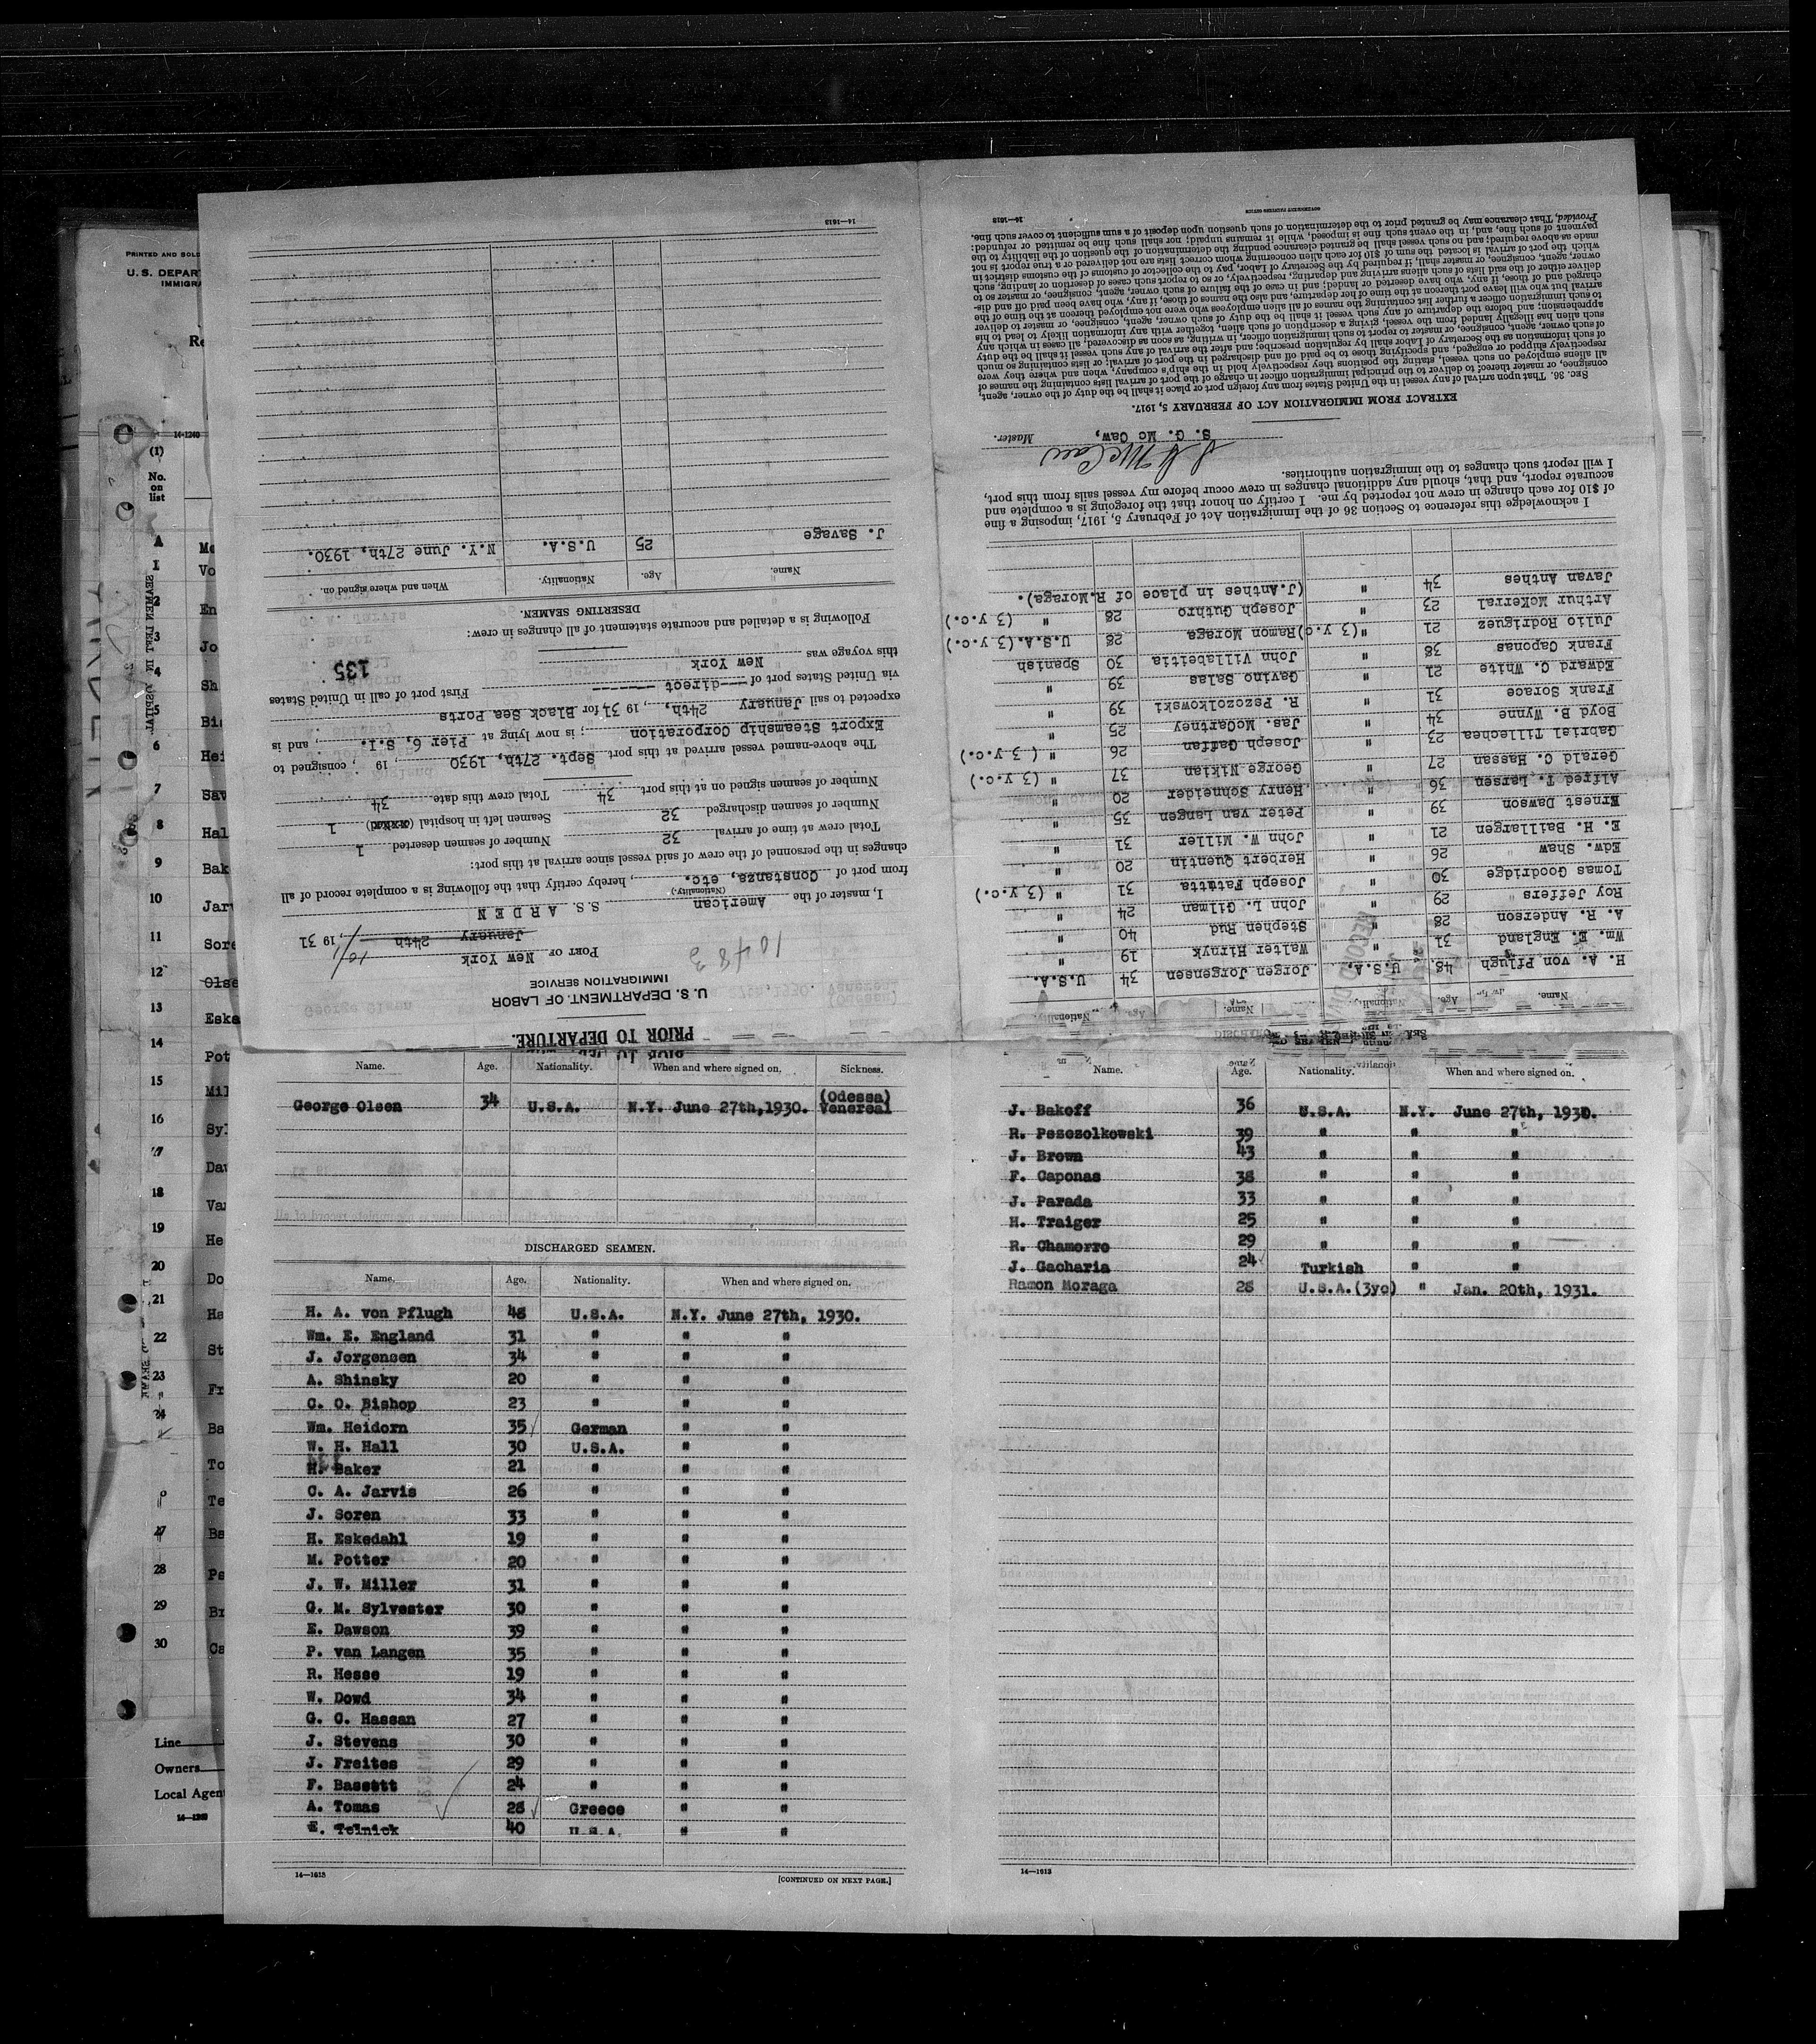 PRIOR TO DEPARTURE.
U. S. DEPARTMENT OF LABOR
IMMIGRATION SERVICE
10483
PORT OF New York
January 24th 19 31
I, master of the American S.S. ARDEN
(Nationality.)
from port of Constanza, etc. , hereby certify that the following is a complete record of all
changes in the personnel of the crew of said vessel since arrival at this port:
Total crew at time of arrival 32 Number of seamen deserted 1
Number of seamen discharged 32 Seamen left in hospital 1
Number of seamen signed on at this port 34 Total crew this date 34
The above-named vessel arrived at this port Sept. 27th, 1930 , 19 , consigned to
Export Steamship Corporation ; is now lying at Pier 6, S.I. , and is
expected to sail January 24th, , 19 31 for Black Sea Ports
via United States port of ---direct------ First port of call in United States
this voyage was New York
135
Following is a detailed and accurate statement of all changes in crew:
DESERTING SEAMEN.
Name. Age. Nationality. When and where signed on.
J. Savage 25 U.S.A. N.Y. June 27th, 1930.
14—1613
Name. Age. Nationality. When and where signed on. Sickness.
George Olsen 34 U.S.A. N.Y. June 27th,1930. (Odessa) Venereal
DISCHARGED SEAMEN.
Name. Age. Nationality. When and where signed on.
H. A. von Pflugh 48 U.S.A. N.Y. June 27th, 1930.
Wm. E. England 31 " " "
J. Jorgensen 34 " " "
A. Shinsky 20 " " "
C. O. Bishop 23 " " "
Wm. Heidorn 35 German " "
W. H. Hall 30 U.S.A. " "
H. Baker 21 " " "
C. A. Jarvis 26 " " "
J. Soren 33 " " "
H. Eskedahl 19 " " "
M. Potter 20 " " "
J. W. Miller 31 " " "
G. M. Sylvester 30 " " "
E. Dawson 39 " " "
P. van Langen 35 " " "
R. Hesse 19 " " "
W. Dowd 34 " " "
G. C. Hassan 27 " " "
J. Stevens 30 " " "
J. Freites 29 " " "
F. Bassett 24 " " "
A. Tomas 28 Greece " "
E. Telnick 40 U.S.A. " "
14—1613 [CONTINUED ON NEXT PAGE.]
Name. Age. Nationality. When and where signed on.
J. Bakoff 36 U.S.A. N.Y. June 27th, 1930.
R. Pszczolkowski 39 " " "
J. Brown 43 " " "
F. Caponas 38 " " "
J. Parada 33 " " "
H. Traiger 25 " " "
R. Chamorro 29 " " "
J. Gacharia 24 Turkish " "
Ramon Moraga 28 U.S.A.(3yc) " Jan. 20th, 1931.
14—1613
Name. Age. Nationality. Name. Age. Nationality.
H. A. von Pflugh 48 U.S.A. Jorgen Jorgensen 34 U.S.A.
Wm. E. England 31 " Walter Hirnyk 19 "
A. R. Anderson 28 " Stephen Rud 40 "
Roy Jeffers 29 " John L. Gilman 24 "
Tomas Goodridge 30 " Joseph Fatutta 31 " (3 y.c.)
Edw. Shaw 26 " Herbert Quentin 20 "
E. H. Baillargen 21 " John W. Miller 31 "
Ernest Dawson 39 " Peter van Langen 35 "
Alfred T. Larsen 36 " Henry Schneider 20 "
Gerald C. Hassan 27 " George Nikian 37 " (3 y.c.)
Gabriel Tillechea 23 " Joseph Gaffan 26 " ( 3 y.c.)
Boyd B. Wynne 34 " Jas. McCartney 25 "
Frank Sorace 31 " R. Pszczolkowski 39 "
Edward C. White 21 " Gavino Salas 39 "
Frank Caponas 38 " John Villabeitia 30 Spanish
Julio Rodriguez 21 "(3 y.c) Ramon Moraga 28 U.S.A.(3 y.c.)
Arthur McKerral 23 " Joseph Guthro 28 " (3 y.c.)
Javan Anthes 34 " (J.Anthes in place of R.Moraga).
I acknowledge this reference to Section 36 of the Immigration Act of February 5, 1917, imposing a fine
of $10 for each change in crew not reported by me. I certify on honor that the foregoing is a complete and
accurate report, and that, should any additional changes in crew occur before my vessel sails from this port,
I will report such changes to the immigration authorities.
S G McCaw
S. G. Mc Caw, Master.
EXTRACT FROM IMMIGRATION ACT OF FEBRUARY 5, 1917.
SEC. 36. That upon arrival of any vessel in the United States from any foreign port or place it shall be the duty of the owner, agent,
consignee, or master thereof to deliver to the principal immigration officer in charge of the port of arrival lists containing the names of
all aliens employed on such vessel, stating the positions they respectively hold in the ship's company, when and where they were
respectively shipped or engaged, and specifying those to be paid off and discharged in the port of arrival; or lists containing so much
of such information as the Secretary of Labor shall by regulation prescribe; and after the arrival of any such vessel it shall be the duty
of such owner, agent, consignee, or master to report to such immigration officer, in writing, as soon as discovered, all cases in which any
such alien has illegally landed from the vessel, giving a description of such alien, together with any information likely to lead to his
apprehension; and before the departure of any such vessel it shall be the duty of such owner, agent, consignee, or master to deliver
to such immigration officer a further list containing the names of all alien employees who were not employed thereon at the time of the
arrival but who will leave port thereon at the time of her departure, and also the names of those, if any, who have been paid off and dis-
charged and of those, if any, who have deserted or landed; and in case of the failure of such owner, agent, consignee, or master so to
deliver either of the said lists of such aliens arriving and departing, respectively, or so to report such cases of desertion or landing, such
owner, agent, consignee, or master shall, if required by the Secretary of Labor, pay to the collector of customs of the customs district in
which the port of arrival is located the sum of $10 for each alien concerning whom correct lists are not delivered or a true report is not
made as above required; and no such vessel shall be granted clearance pending the determination of the question of the liability to the
payment of such fine, and, in the event such fine is imposed, while it remains unpaid; nor shall such fine be remitted or refunded:
Provided, That clearance may be granted prior to the determination of such question upon deposit of a sum sufficient to cover such fine.
14—1613 GOVERNMENT PRINTING OFFICE
PRINTED AND SOLD
U. S. DEPART
IMMIGRA
14-1240
(1)
No.
on
list
A
1 Vo
2 En
3 Jo
4 Sh
5 Bis
6 Hei
7 Sav
8 Hal
9 Bak
10 Jarv
11 Sore
12 Olse
13 Eska
14 Pot
15 Mil
16 Syl
17 Daw
18 Van
19 He
20 Do
21 Ha
22 St
23 Fr
24 Ba
To
Te
27 Ba
28 Pa
29 Br
30 Ca
Line
Owners
Local Agen